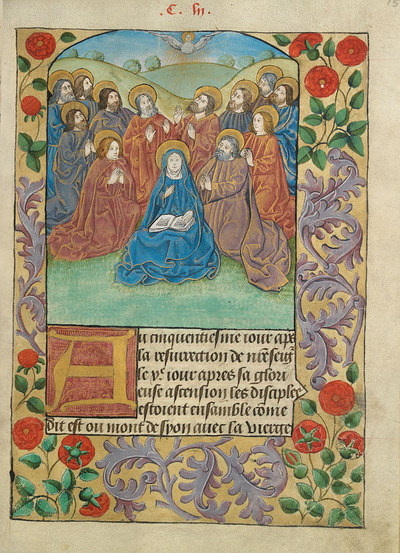 C. lii.
Au cinquentiesme iour apres
la resurrection de nre seigr
le xe iour apres sa glori
euse ascension les disciples
estoient ensamble cōme
dit est ou mont de syon auec la vierge